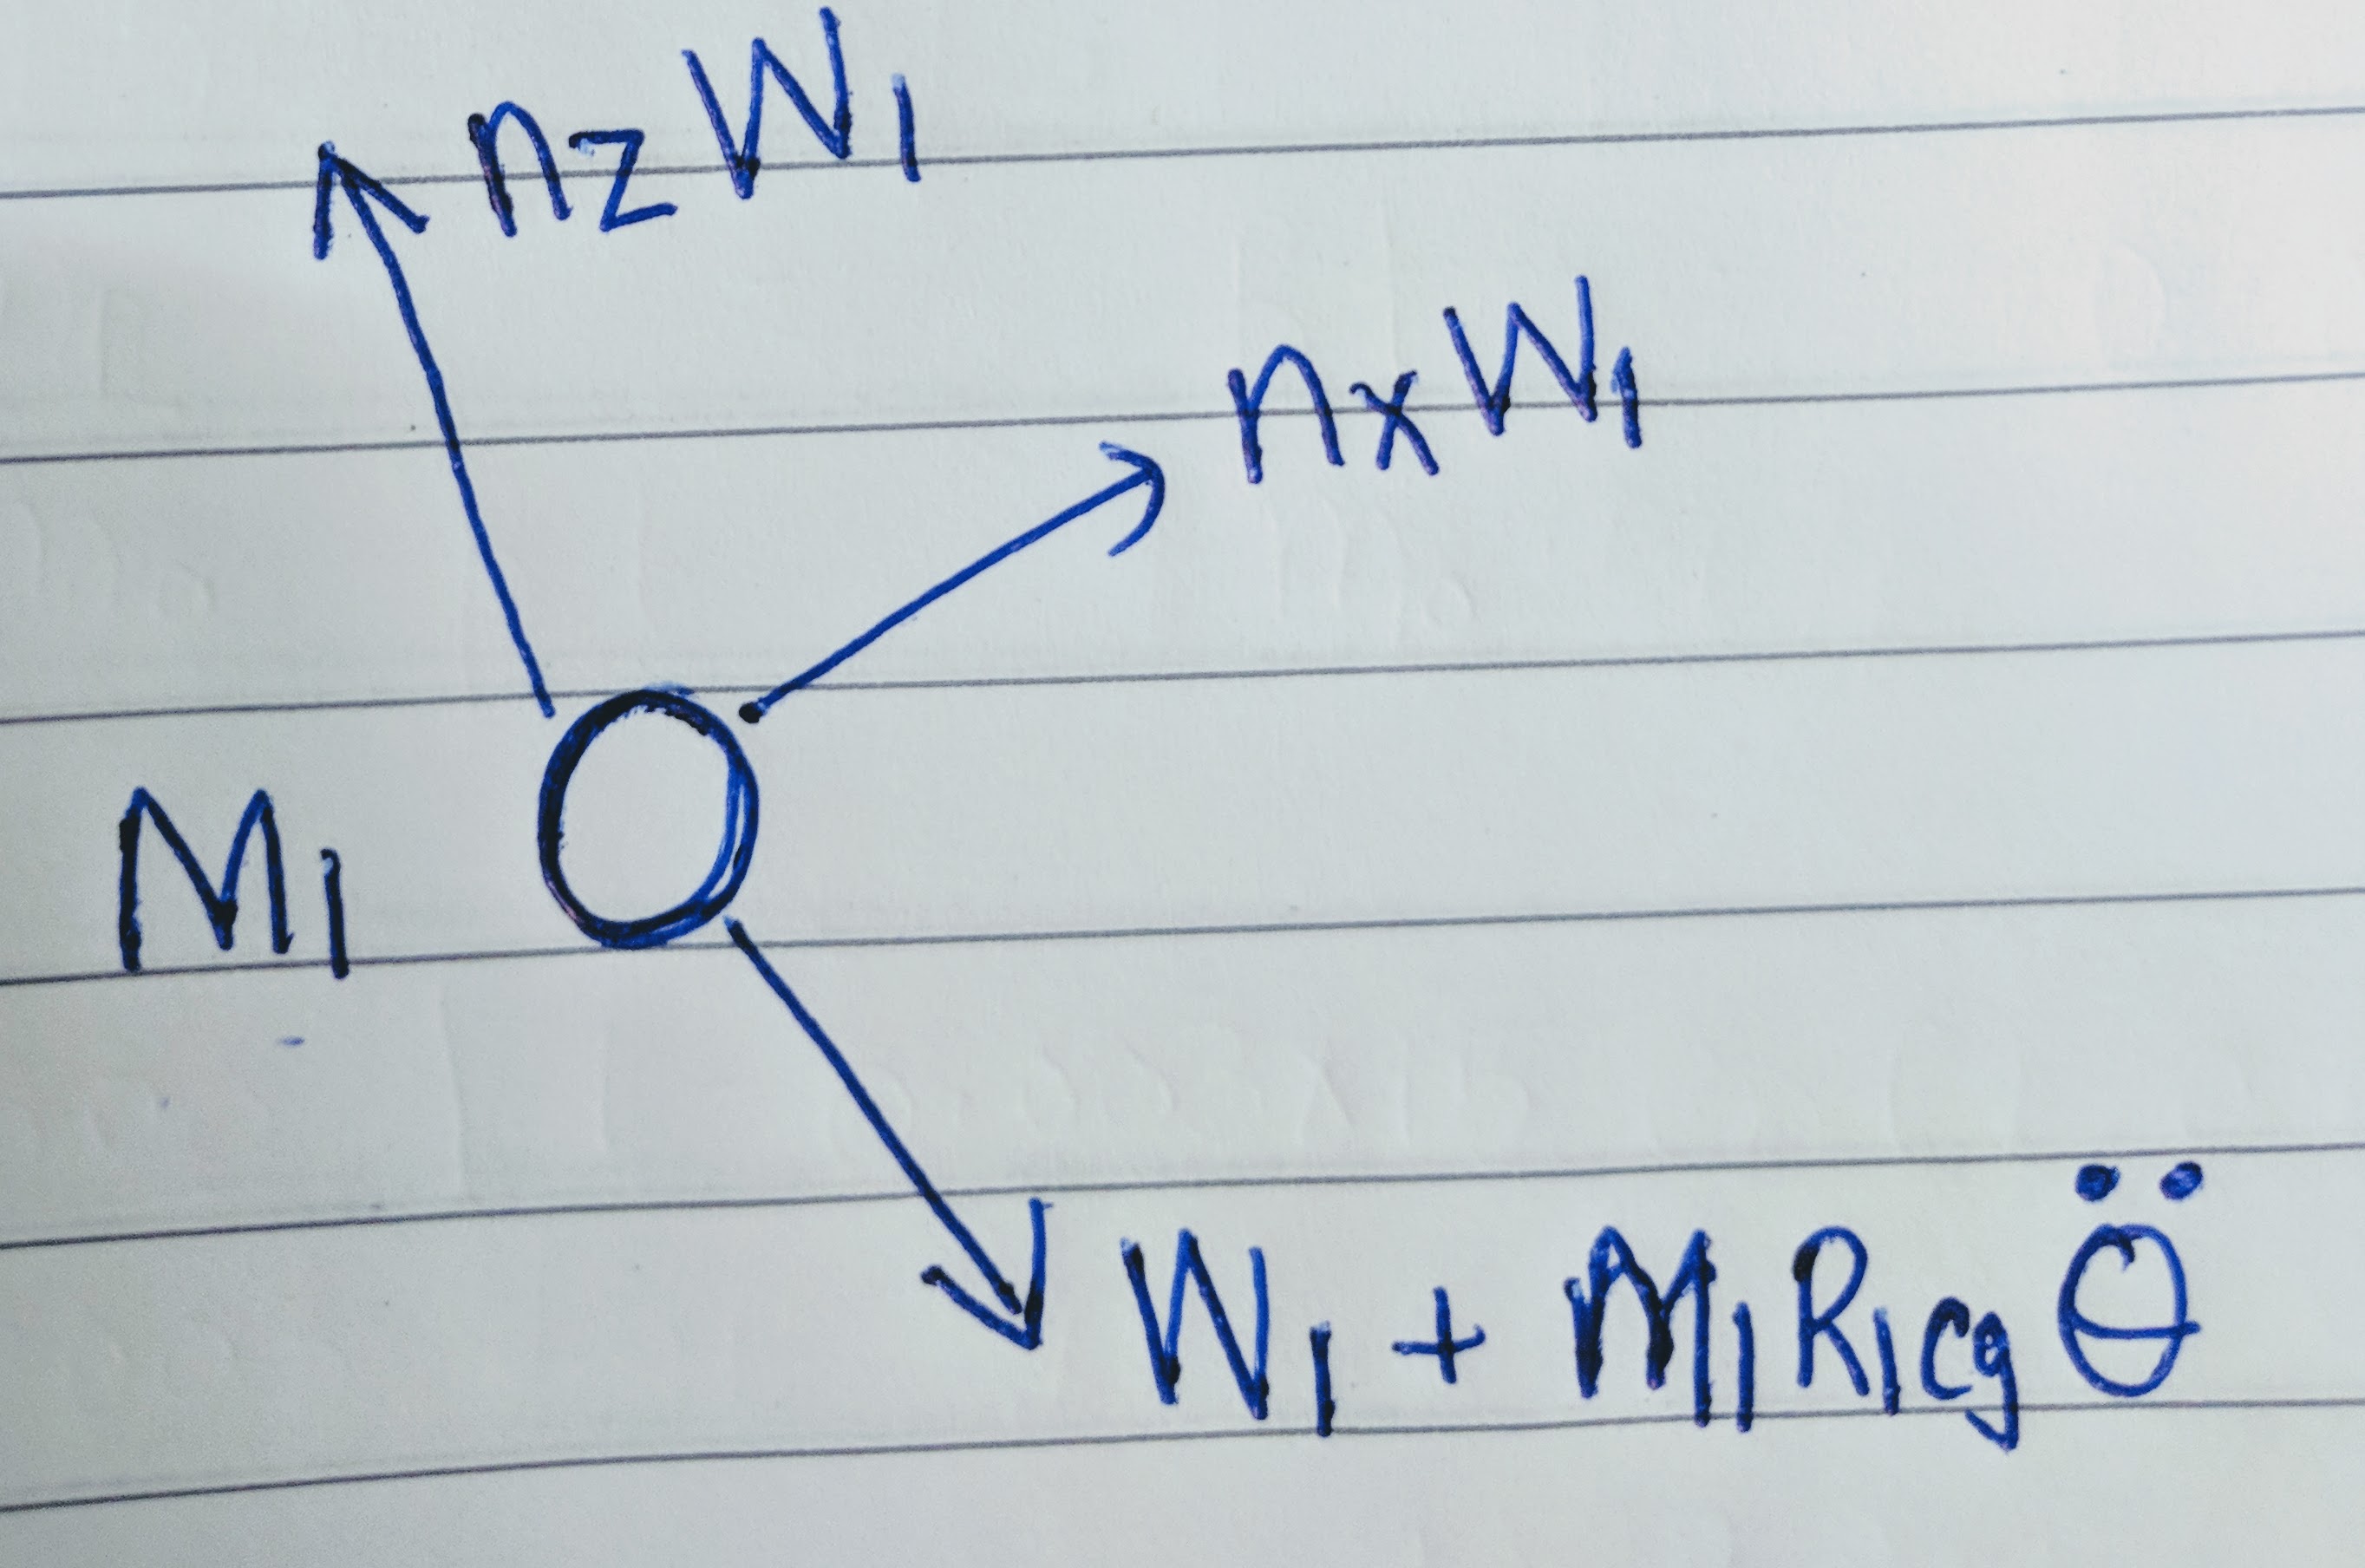 nzW1
nxW1
M1
W1 + M1R1cgθ̈